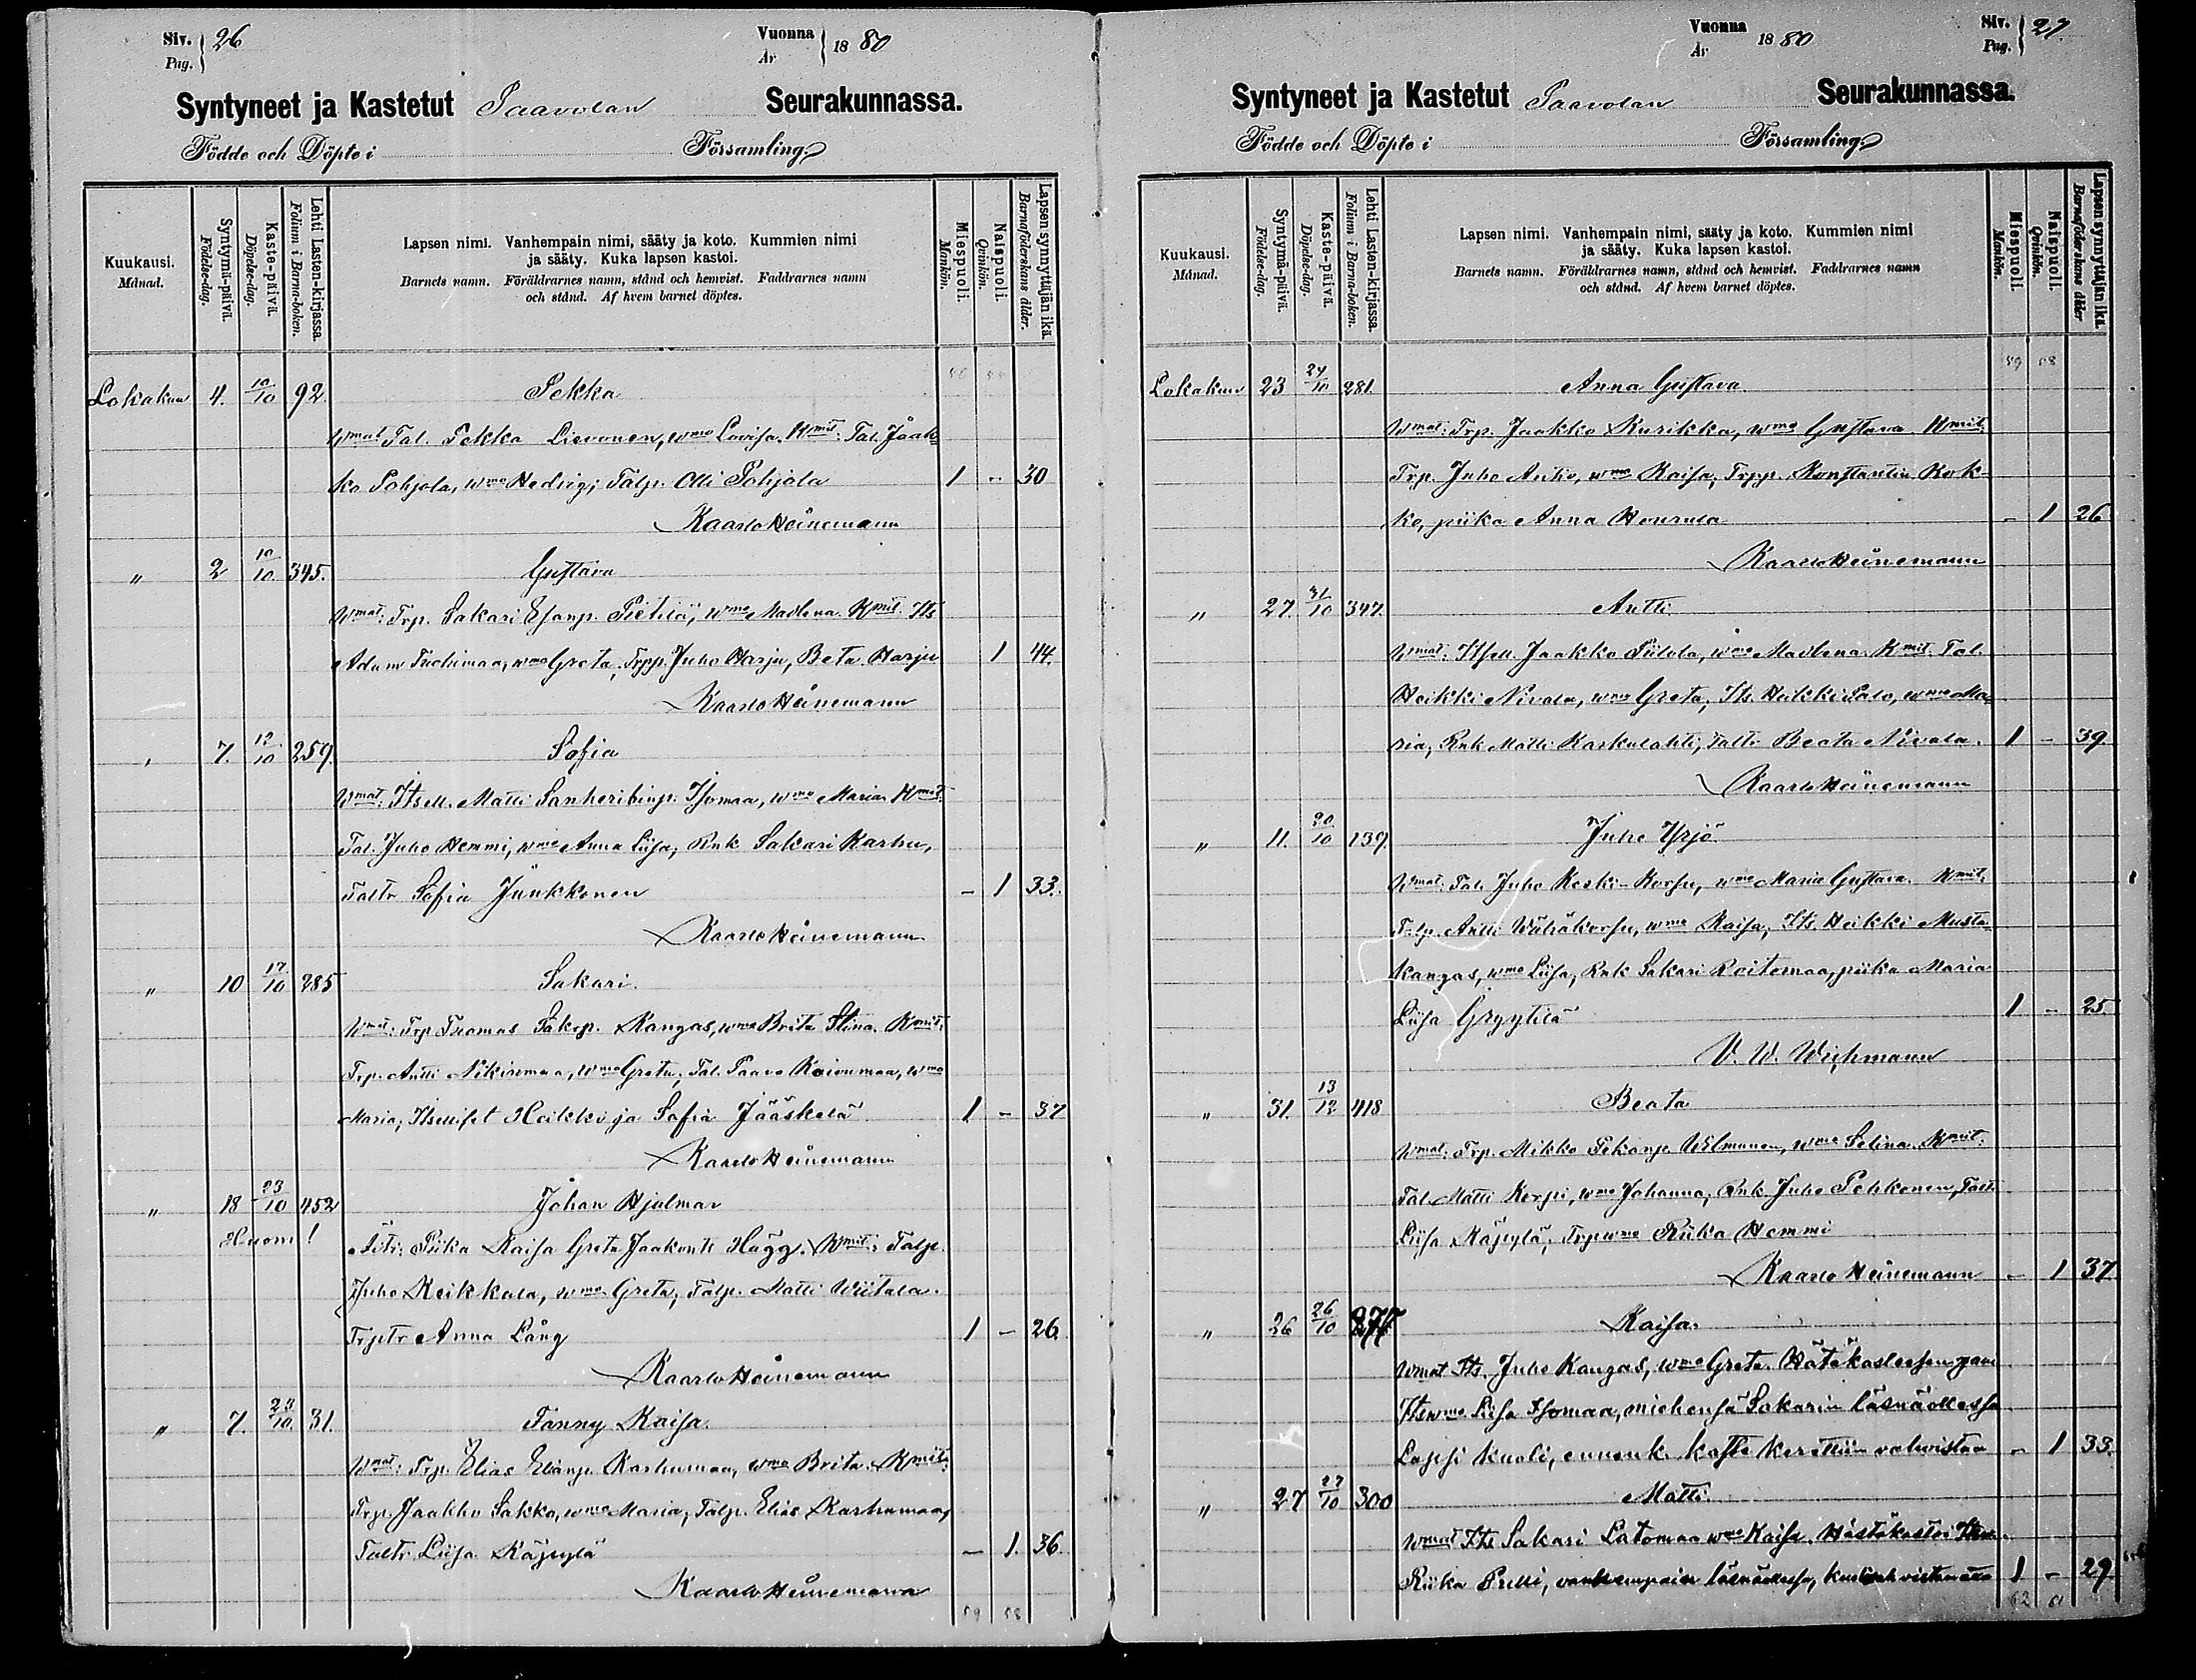 Siv. 26
Pag.
Vuonna 1880
År
Syntyneet ja Kastetut Paavolan Seurakunnassa.
Födde och Döpte i Församling
Kuukausi. Månad.
Syntymä-päivä. Födelse-dag.
Kaste-päivä. Döpelse-dag.
Lehti Lasten-kirjassa. Folium i Barna-boken.
Lapsen nimi. Vanhempain nimi, sääty ja koto. Kummien nimi
ja sääty. Kuka lapsen kastoi.
Barnets namn. Föräldrarnes namn, stånd och hemvist. Faddrarnes namn
och stånd. Af hvem barnet döptes.
Miespuoli. Mankön.
Naispuoli. Qvinkön.
Lapsen synnyttäjän ikä. Barnaföderskans ålder.
Lokakuu 4. 10/10 92. Pekka
Wmat Tal. Pekka Lievonen, wmo Lovisa. Kmit: Tal. Jaak
ko Pohjola, wmo Hedvig; Talp. Olli Pohjola 1 - 30
Kaarlo Heinemann
" 2 10/10 345. Gustava
Wmat: Trp. Sakari Esanp. Pietilä, wmo Madlena. Kmit. Its
Adam Tuohimaa, wmo Greta, Trpp. Juho Harju, Beta Harju 1 44.
Kaarlo Heinemann
" 7. 12/10 259. Sofia
Wmat: Itsell. Matti Sanheribinp. Isomaa, wmo Maria. Kmit:
Tal. Juho Hemmi, wmo Anna Liisa, Rnk Sakari Karhu,
Taltr Sofia Junkkonen - 1 33.
Kaarlo Heinemann
" 10 17/10 285 Sakari.
Wmat: Trp Tuomas Sakrp. Kangas, wmo Brita Stina. Kmit:
Trp. Antti Nikinmaa, wmo Greta, Tal. Paavo Koivumaa, wmo
Maria, Itselliset Heikki ja Sofia Jääskelä 1 - 37
Kaarlo Heinemann
" 18 23/10 452 Johan Hjalmar
Huom! Äiti: Piika Kaisa Greta Jaakontr Hägg. Kmit: Talp.
Juho Keikkala, wmo Greta, Talp. Matti Wiitala.
Trptr Anna Lång 1 - 26.
Kaarlo Heinemann
" 7. 23/10. 31. Fanny Kaisa.
Wmat: Trp. Elias Elianp. Karhumaa, wmo Brita. Kmit:
Trp. Jaakko Sakko, wmo Maria, Talp. Elias Karhumaa,
Taltr Liisa Käpylä - 1. 36.
Kaarlo Heinemann
59 58
Vuonna 1880
År
Siv. 27
Pag.
Syntyneet ja Kastetut Paavolan Seurakunnassa.
Födde och Döpte i Församling
Kuukausi. Månad.
Syntymä-päivä. Födelse-dag.
Kaste-päivä. Döpelse-dag.
Lehti Lasten-kirjassa. Folium i Barna-boken.
Lapsen nimi. Vanhempain nimi, sääty ja koto. Kummien nimi
ja sääty. Kuka lapsen kastoi.
Barnets namn. Föräldrarnes namn, stånd och hemvist. Faddrarnes namn
och stånd. Af hvem barnet döptes.
Miespuoli. Mankön.
Naispuoli. Qvinkön.
Lapsen synnyttäjän ikä. Barnaföderskans ålder
59 58
Lokakuu 23 24/10 281. Anna Gustava
Wmat: Trp. Jaakko Kurikka, wmo Gustava Kmit:
Trp. Juho Anko, wmo Kaisa, Trpp. Konstantin Kok-
ko, piika Anna - 1 26
Kaarlo Heinemann
" 27. 31/10 347. Antti
Wmat: Itsell. Jaakko Piilola, wmo Madlena. Kmit. Tal.
Heikki Nivala, wmo Greta, Its. Heikki Salo, wmo Ma-
ria, Rnk Matti Karkulahti, Taltr Beata Nivala. 1 - 39.
Kaarlo Heinemann
" 11. 20/10 139. Juho Yrjö
Wmat: Tal. Juho Keski-Korsu, wmo Maria Gustava. Kmit:
Talp. Antti Wähäkorsu, wmo Kaisa, Its. Heikki Musta
kangas, wmo Liisa, Rnk Sakari Roitomaa, piika Maria
Liisa Gryytilä 1 - 25.
V. W. Wichmann
" 31. 13/12 418 Beata
Wmat: Trp. Mikko Pekanp. Wilmunen, wmo Selina. Kmit:
Tal. Matti Kerpi, wmo Johanna, Rnk. Juho Pehkonen, Taltr
Liisa Käpylä; Trpwmo Riika Hemmi
Kaarlo Heinemann - 1 37.
" 26 26/10 277 Kaisa.
Wmat Its. Juho Kangas, wmo Greta. Hätäkasteesen
Itswmo Liisa Isomaa, miehensä Sakarin läsnäollessa
Lapsi kuoli, ennenk. kaste kerittiin vahvistaa - 1 33.
" 27 27/10 300 Matti.
Wmat Its Sakari Latomaa wmo Kaisa. Hätäkastoi
Riika Pelli, vanhempain läsnäollessa, 1 - 29.
62 61